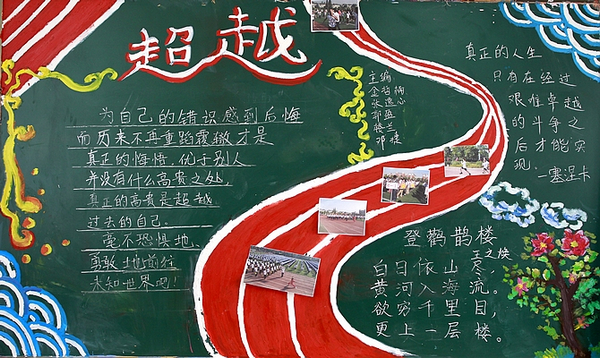 超越
为自己的错识感到后悔
而历来不再重蹈覆辙才是
真正的悔悟.优于别人
并没有什么高贵之处,
真正的高贵是超越
过去的自己.
毫不恐惧地、
勇敢地前往
未知世界吧!
主编
张逸心
楼兰
真正的人生
只有在经过
艰难卓越
的斗争之
后才能实
现.
—塞涅卡
登鹳鹊楼
王之涣
白日依山尽,
黄河入海流。
欲穷千里目,
更上一层楼。